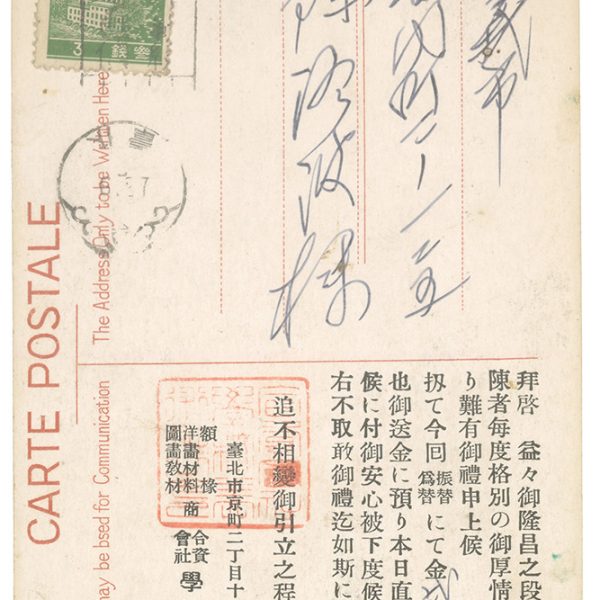 義市
澄波樣
3 錢參
CARTE POSTALE
The Address Only to be Written Here
may be bsed for Communication
拜啓 益々御隆昌之段
陳者每度格別の御厚情
り難有御禮申上候
扨て今回 振替 爲替 にて金
也御送金に預り本日直
候に付御安心被下度候
右不取敢御禮迄如斯に
追不相變御引立之程
臺北市京町二丁目十
額椽
洋畫材料
圖畫敎材
商 合資會社 學